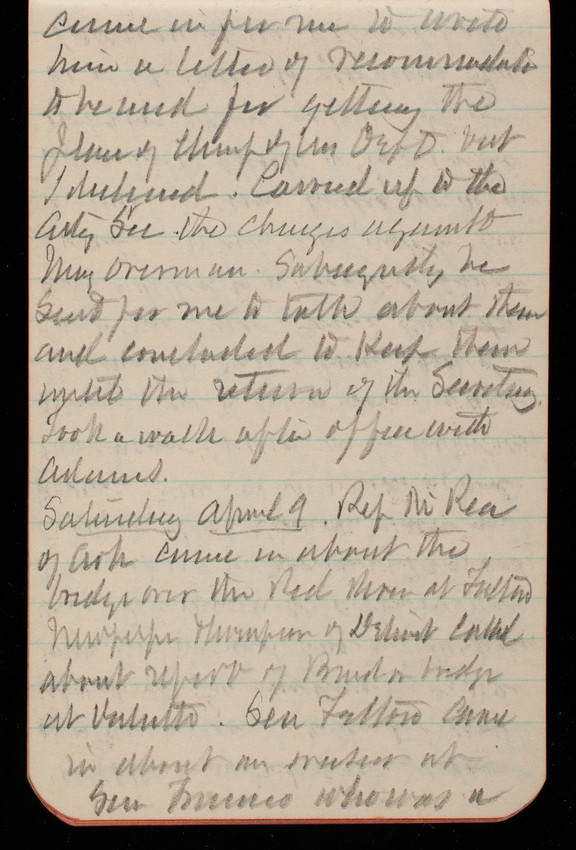 came in for me to write
him a letter of recommendatn
to be used for getting the
of Dept. but
I declined. Carried up to the
Actg Sec. the charges against
Maj Overman. Subsequently he
Sent for me to talk about them
and concluded to Keep them
until the return of the Secretary.
Took a walk after office with
Adams.
Saturday April 9. Rep McRea
of Ark came in about the
bridge over the Red River at Fulton
Thompson of Detroit called
about report of Board on bridge
at Duluth. Sen came
in about an at
San Francisco who was a